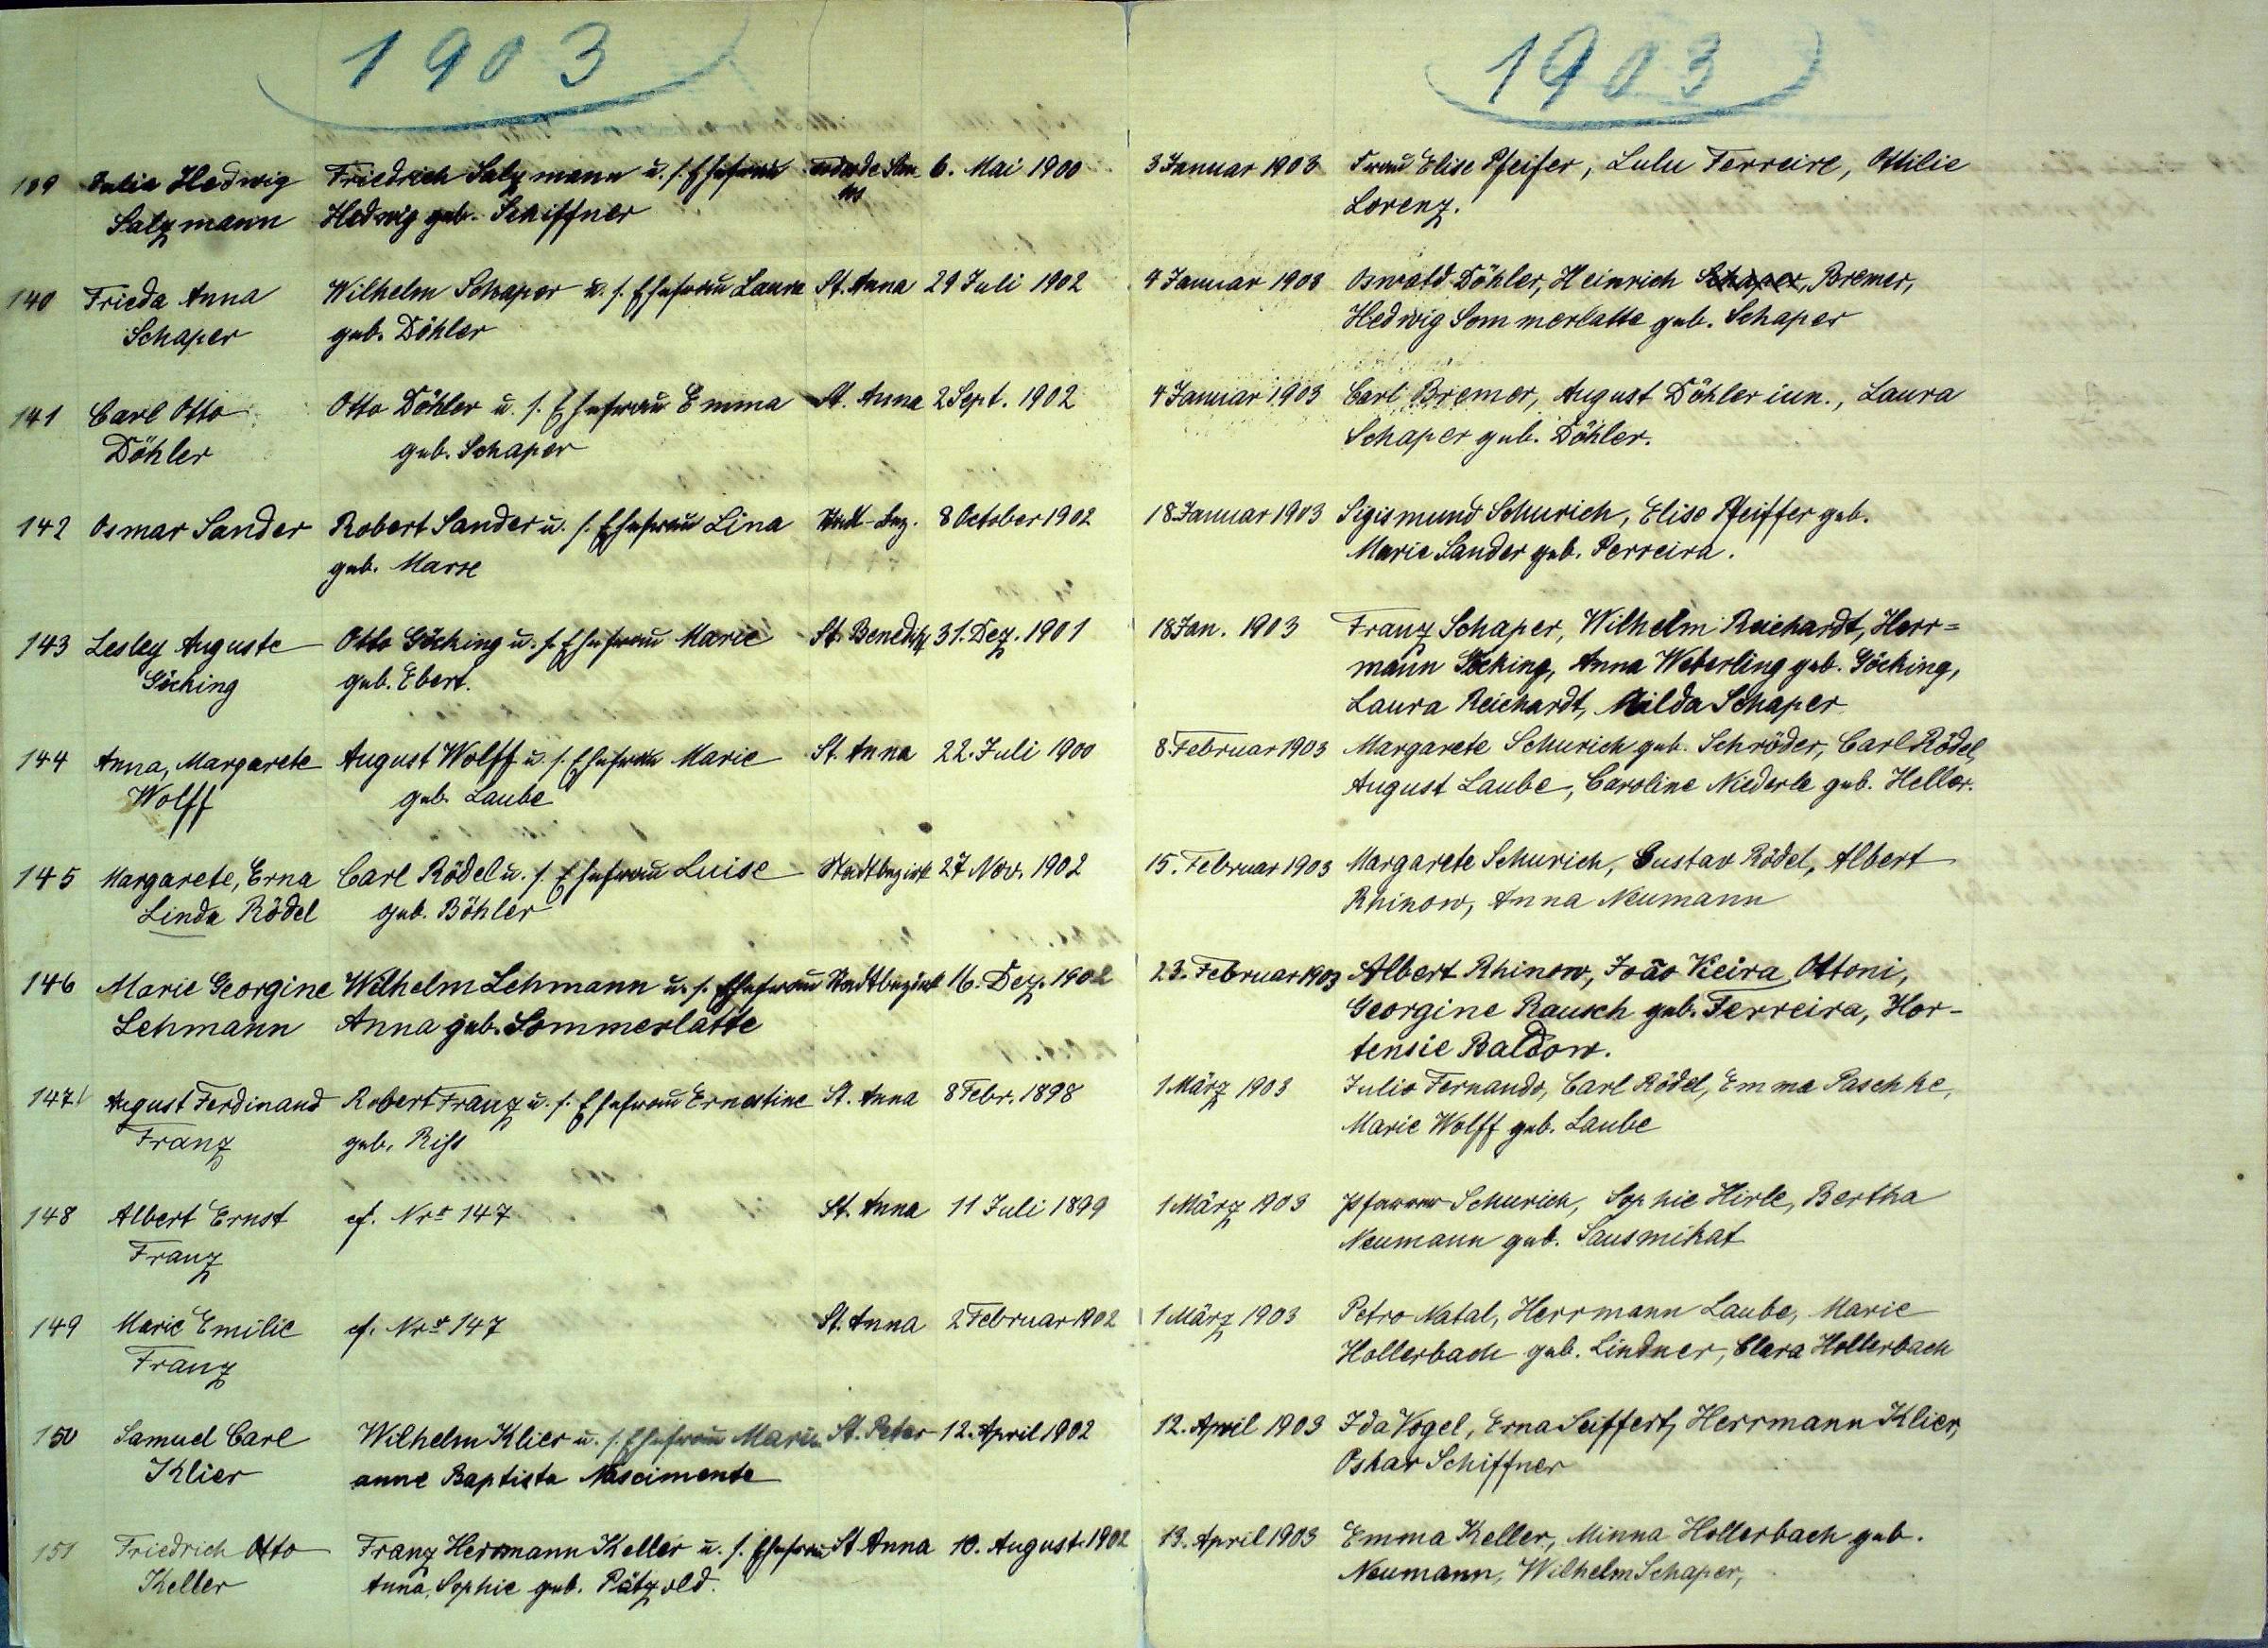 1903
1903
139 Julia Hedwig Friedrich Salzmann u. s. Ehefrau 6. Mai 1900 3 Januar 1903 Frau Elise Pfeifer, Lulu Ferreire, Ottilie
Salzmann Hedwig geb. Schiffner Lorenz.
140 Frieda Anna Wilhelm Schaper u. s. Ehefrau Laura St. Anna 29 Juli 1902 4 Januar 1903 Oswald Döhler, Heinrich Schaper, Bremer,
Schaper geb. Döhler Hedwig Sommerlatte geb. Schaper
141 Carl Otto Otto Döhler u. s. Ehefrau Emma St. Anna 2 Sept. 1902 4 Januar 1903 Carl Bremer, August Döhler iun., Laura
Döhler geb. Schaper Schaper geb. Döhler.
142 Osmar Sander Robert Sander u. s. Ehefrau Lina Stadt-Bez. 8 October 1902 18 Januar 1903 Sigismund Schurich, Elise Pfeiffer geb.
geb. Marie Sander geb. Perreira.
143 Lesley Auguste Otto Göcking u. s. Ehefrau Marie St. Benedikt 31. Dez. 1901 18 Jan. 1903 Franz Schaper, Wilhelm Reichardt, Herr=
Göcking geb. Ebert. mann Göcking, Anna Weberling geb. Göcking,
Laura Reichardt, Milda Schaper
144 Anna, Margarete August Wolff u. s. Ehefrau Marie St. Anna 22. Juli 1900 8. Februar 1903 Margarete Schurich geb. Schröder, Carl Rödel,
Wolff geb. Laube August Laube, Caroline Niederle geb. Heller.
145 Margarete, Erna Carl Rödel u. s. Ehefrau Luise Stadtbezirk 27 Nov. 1902 15. Februar 1903 Margarete Schurich, Gustav Rödel, Albert
Linda Rödel geb. Böhler Rhinow, Anna Neumann
146 Marie Georgine Wilhelm Lehmann u. s. Ehefrau Stadtbezirk 16. Dez. 1902 23. Februar 1903 Albert Rhinow, João Vieira Ottoni,
Lehmann Anna geb. Sommerlatte Georgine Rausch geb. Ferreira, Hor-
tensie Baldow.
147 August Ferdinand Robert Franz u. s. Ehefrau Ernestine St. Anna 8 Febr. 1898 1 März 1903 Julio Fernando, Carl Rödel, Emma Paschke,
Franz geb. Marie Wolff geb. Laube
148 Albert Ernst cf. Nro 147 St. Anna 11 Juli 1899 1 März 1903 Pfarrer Schurich, Sophie Hirle, Bertha
Franz Neumann geb. Sausmikat
149 Marie Emilie cf. Nro 147 St. Anna 2 Februar 1902 1 März 1903 Petro Natal, Herrmann Laube, Marie
Franz Hollerbach geb. Lindner, Clara Hollerbach
150 Samuel Carl Wilhelm Klier u. s. Ehefrau Mari- St. Peter 12. April 1902 12. April 1903 Ida Vogel, Erna Seiffert, Herrmann Klier,
Klier anne Baptista Nascimente Oskar Schiffner
151 Friedrich Otto Franz Hermann Keller u. s. Ehefrau St Anna 10. August 1902 13. April 1903 Emma Keller, Minna Hollerbach geb.
Keller Anna, Sophie geb. Pätzold. Neumann, Wilhelm Schaper,